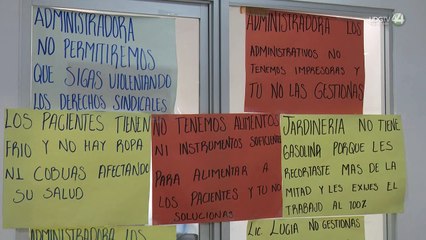 ADMINISTRADORA
NO PERMITIREMOS
QUE SIGAS VIOLENTANDO
LOS DERECHOS SINDICALES
ADMINISTRADORA LOS
ADMINISTRATIVOS NO
TENEMOS IMPRESORAS Y
TU NO LAS GESTIONAS
LOS PACIENTES TIENEN
FRIO Y NO HAY ROPA
NI COBIJAS AFECTANDO
SU SALUD
NO TENEMOS ALIMENTOS
NI INSTRUMENTOS SUFICIENTE
PARA ALIMENTAR A
LOS PACIENTES Y TU NO
SOLUCIONAS
JARDINERIA NO TIENE
GASOLINA PORQUE LES
RECORTASTE MAS DE LA
MITAD Y LES EXIJES EL
TRABAJO AL 100%
ADMINISTRADORA LOS
LIC. LUCIA NO GESTIONAS
44